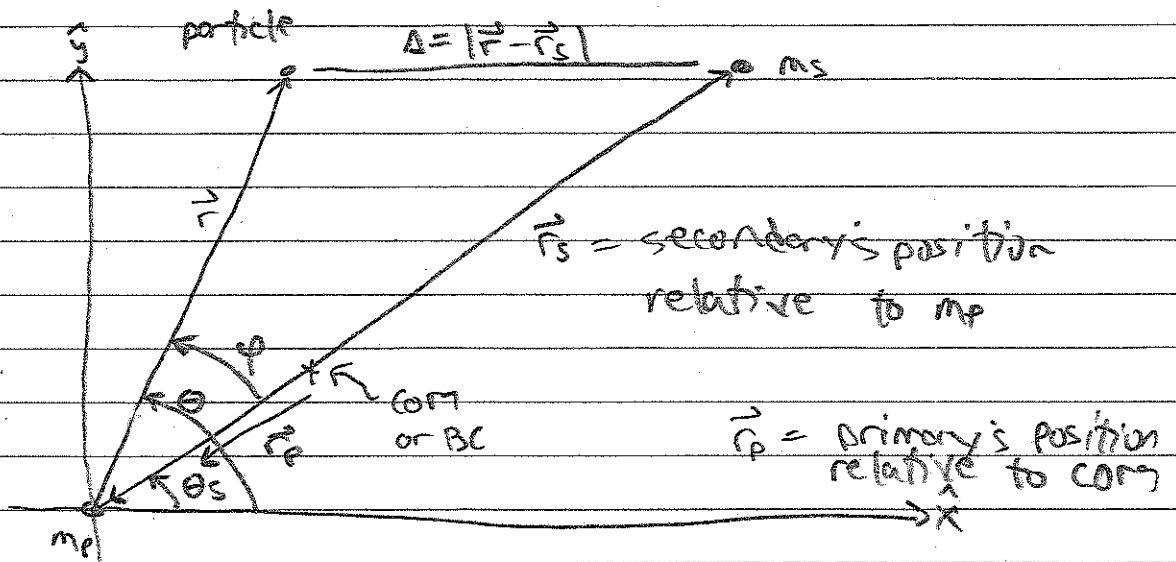 ŷ
particle
Δ = |r⃗ - r⃗s|
ms
r⃗
r⃗s = secondary's position
relative to mp
φ
θ
COM
or BC
r⃗p
r⃗p = primary's position
relative to COM
θs
x̂
mp